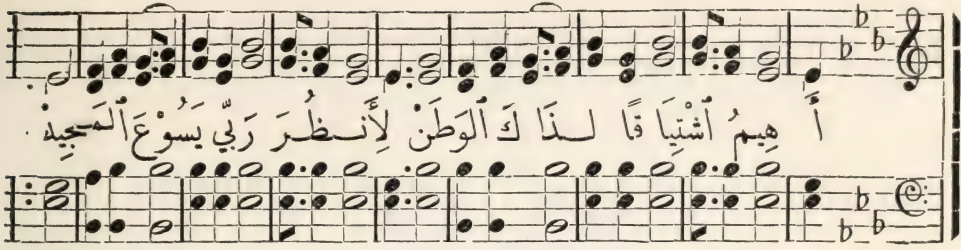 أَ هِيمُ ٱشْتِيَا قًا لِـذَا كَ ٱلْوَطَنْ لِأَنـظُـرَ رَبِّي يَسُوْعَ ٱلْمَـجِيدْ .